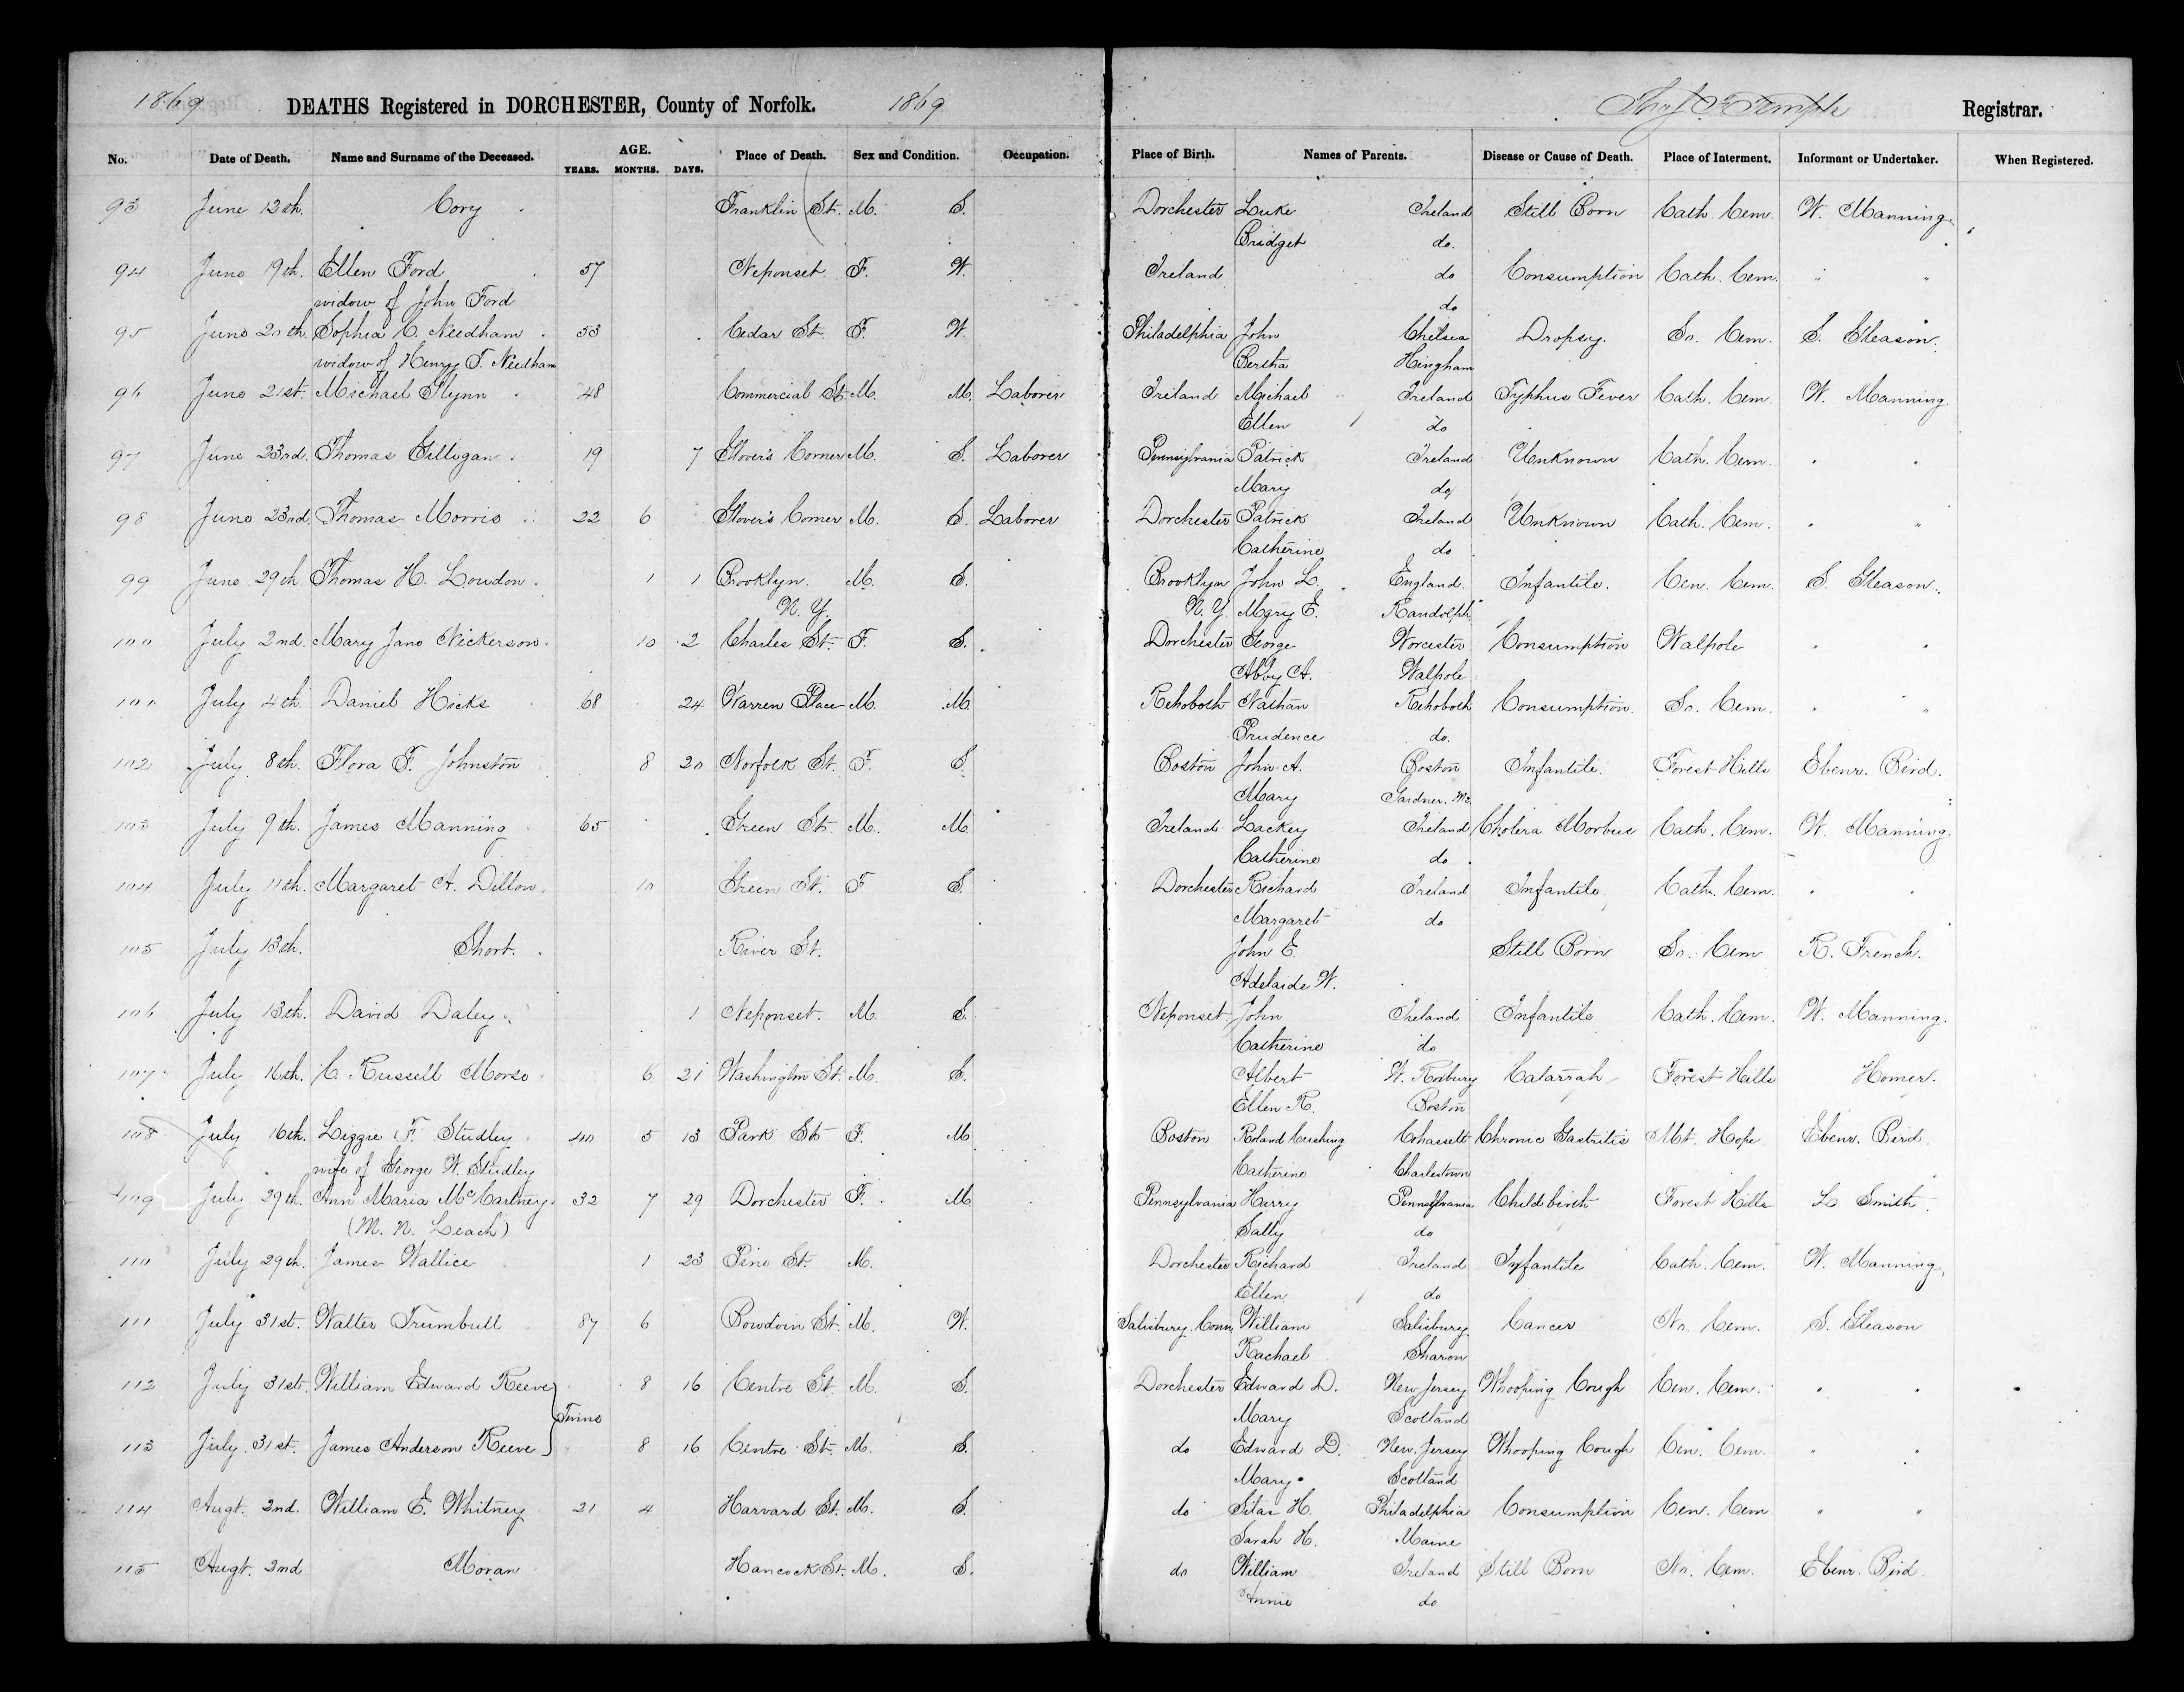 1869 DEATHS Registered in DORCHESTER, County of Norfolk. 1869 Registrar.
No. Date of Death. Name and Surname of the Deceased. AGE. YEARS. MONTHS. DAYS. Place of Death. Sex and Condition. Occupation. Place of Birth. Names of Parents. Disease or Cause of Death. Place of Interment. Informant or Undertaker. When Registered.
93 June 13th. Cory Franklin St. M. S. Dorchester Luke Ireland Still Born Cath. Cem. W. Manning.
Bridget do.
94 June 19th. Ellen Ford 57 Neponset F. W. Ireland do Consumption Cath. Cem. " "
widow of John Ford do
95 June 20th. Sophia C. Needham 53 Cedar St. F. W. Philadelphia John Chelsea Dropsy. So. Cem. S. Gleason.
widow of Henry T. Needham Bertha Hingham
96 June 21st. Michael Glynn 48 Commercial St. M. M. Laborer Ireland Michael Ireland Typhus Fever Cath. Cem. W. Manning.
Ellen do
97 June 23rd. Thomas Gilligan 19 7 Glover's Corner M. S. Laborer Pennsylvania Patrick Ireland Unknown Cath. Cem. " "
Mary do
98 June 23rd Thomas Morris 22 6 Glover's Corner M. S. Laborer Dorchester Patrick Ireland Unknown Cath. Cem. " "
Catherine do
99 June 29th Thomas H. Loudon. 1 1 Brooklyn. M. S. Brooklyn John L. England. Infantile. Cem. Cem. S. Gleason.
N. Y. N. Y. Mary E. Randolph
100 July 2nd. Mary Jane Nickerson. 10 2 Charles St. F. S. Dorchester George Worcester Consumption Walpole " "
Abby A. Walpole
101 July 4th. Daniel Hicks 68 24 Warren Place M. M. Rehoboth Nathan Rehoboth Consumption. So. Cem. " "
Prudence do.
102 July 8th. Flora F. Johnston 8 20 Norfolk St. F. S Boston John A. Boston Infantile. Forest Hills Ebenr. Bird.
Mary Gardner. Me.
103 July 9th. James Manning 65 Green St. M. M. Ireland Lackey Ireland Cholera Morbus Cath. Cem. W. Manning.
Catherine do
104 July 11th. Margaret A. Dillon. 10 Green St. F S. Dorchester Richard Ireland Infantile Cath. Cem. " "
Margaret do
105 July 13th. Short. River St. John E. Still Born So. Cem R. French.
Adelaide W.
106 July 13th. David Daley. 1 Neponset. M. S. Neponset John Ireland Infantile Cath. Cem. W. Manning.
Catherine do
107 July 16th. C. Russell Morse 6 21 Washington St. M. S. Albert W. Roxbury Catarrah Forest Hills Homer.
Ellen R. Boston
108 July 16th. Lizzie F. Studley 40 5 13 Park St. F. M. Boston Roland Cushing Cohassett Chronic Gastritis Mt. Hope Ebenr. Bird.
wife of George W. Studley Catherine Charlestown
109 July 29th. Ann Maria McCartney. 32 7 29 Dorchester F. M. Pennsylvania Harry Pennsylvania Childbirth Forest Hills L Smith.
(M. N. Leach) Sally do
110 July 29th. James Wallice 1 23 Pine St. M. Dorchester Richard Ireland Infantile Cath. Cem. W. Manning.
Ellen do
111 July 31st. Walter Trumbull 87 6 Bowdoin St. M. W. Salisbury. Conn William Salisbury Cancer No. Cem. S. Gleason
Rachael Sharon
112 July 31st. William Edward Reeve 8 16 Centre St. M. S. Dorchester Edward D. New Jersey Whooping Cough Cem. Cem. " "
Twins Mary Scotland
113 July. 31st. James Anderson Reeve 8 16 Centre St. M. S. do Edward D. New. Jersey Whooping Cough Cem. Cem. " "
Mary Scotland
114 Augt. 2nd. William E. Whitney 21 4 Harvard St. M. S. do Silas H. Philadelphia Consumption Cem. Cem " "
Sarah H. Maine
115 Augt. 2nd Moran Hancock St. M. S. do William Ireland Still Born No. Cem. Ebenr. Bird.
Annie do